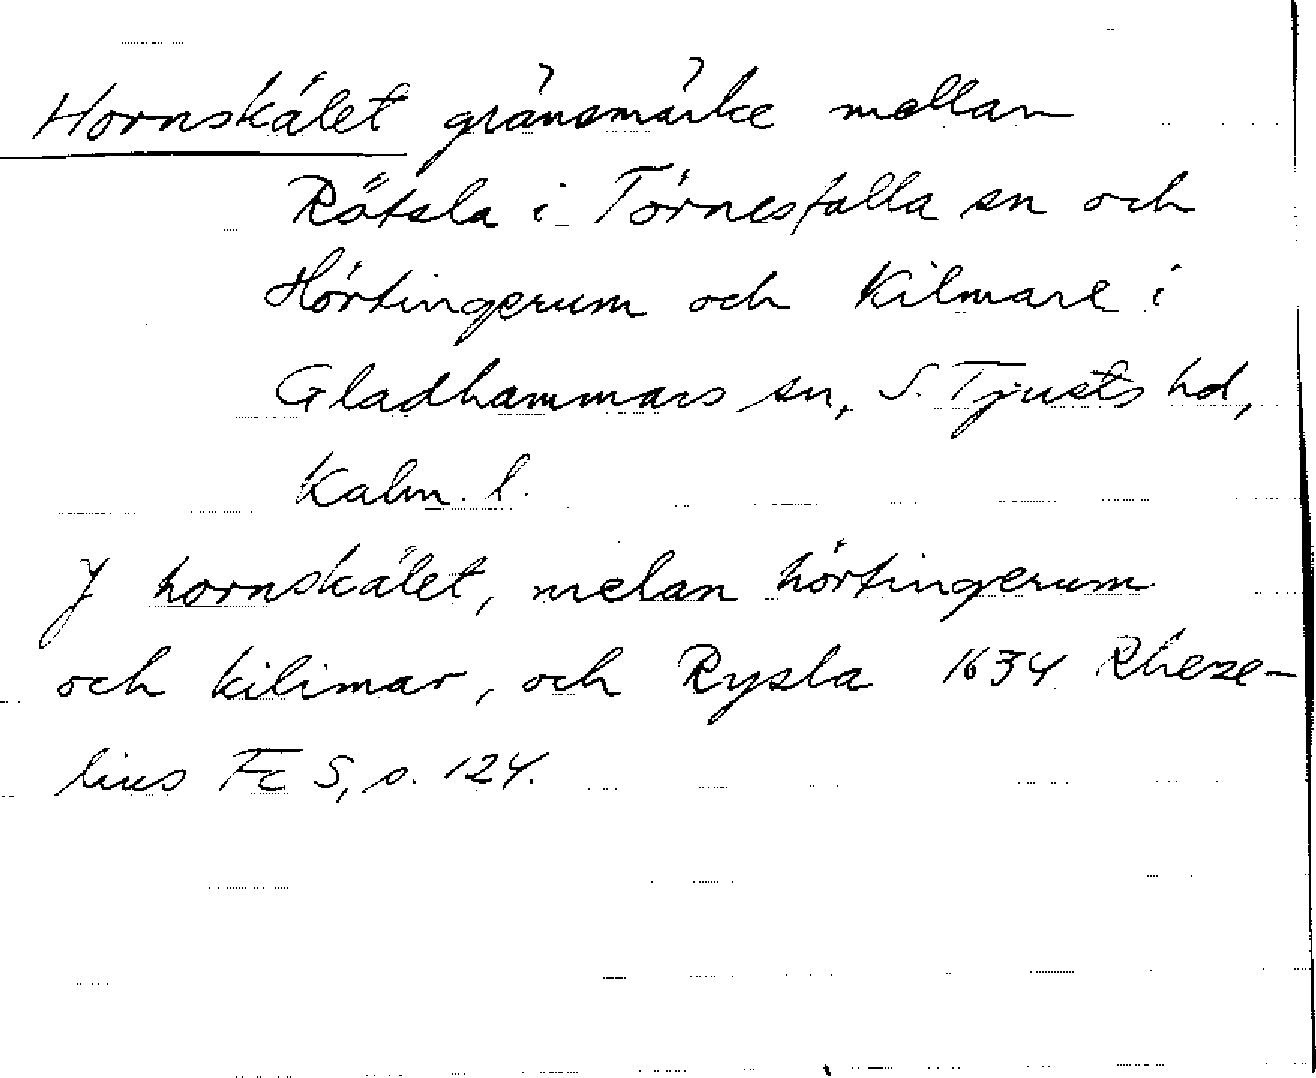 Hornskålet gränsmärke mellan
Rötsla i Törnesfalla sn och
Hörtingerum och Kilmare i
Gladhammars sn, S. Tjusts hd,
Kalm. l.
J hornskålet, melan hörtingerum
och kilimar, och Rysla 1634 Rheze-
lius Fc 5, s. 124.